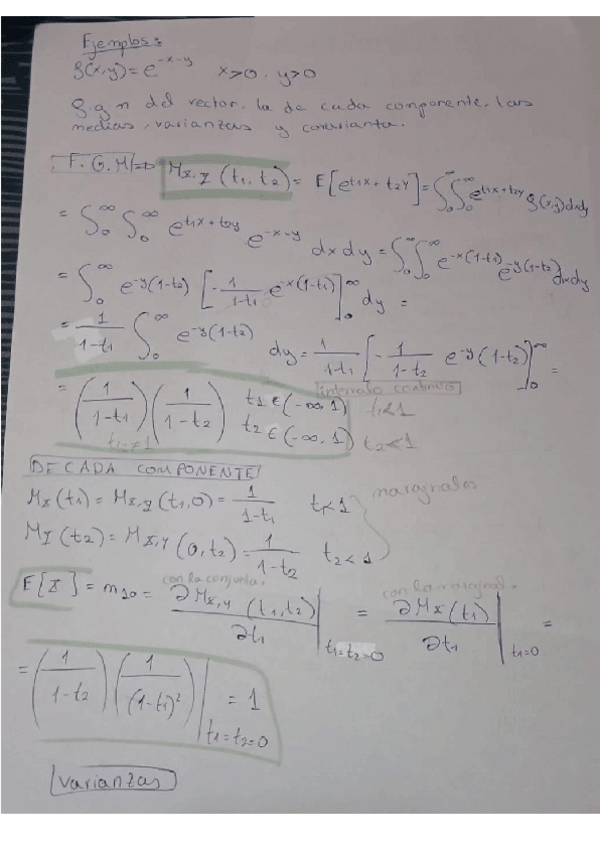 Ejemplos:
f(x,y) = e^{-x-y}   x>0, y>0
f.g.m del vector, la de cada componente, las
medias, varianzas y covarianza.
F.G.M => M_{X,Y}(t1,t2) = E[e^{t1x + t2y}] = ∫_0^∞ ∫_0^∞ e^{t1x + t2y} f(x,y) dx dy
= ∫_0^∞ ∫_0^∞ e^{t1x + t2y} e^{-x-y} dx dy = ∫_0^∞ ∫_0^∞ e^{-x(1-t1)} e^{-y(1-t2)} dx dy
= ∫_0^∞ e^{-y(1-t2)} [-1/(1-t1) e^{-x(1-t1)}]_0^∞ dy =
= 1/(1-t1) ∫_0^∞ e^{-y(1-t2)} dy = 1/(1-t1) [-1/(1-t2) e^{-y(1-t2)}]_0^∞ =
intervalo continuo
= (1/(1-t1)) (1/(1-t2))   t1 ∈ (-∞, 1)   t1<1
t1 ≠ 1   t2 ∈ (-∞, 1)   t2<1
DE CADA COMPONENTE
M_X(t1) = M_{X,Y}(t1,0) = 1/(1-t1)   t1<1   marginales
M_Y(t2) = M_{X,Y}(0,t2) = 1/(1-t2)   t2<1
con la conjunta.   con la marginal.
E[X] = m_{10} = ∂M_{X,Y}(t1,t2)/∂t1 |_{t1=t2=0} = ∂M_X(t1)/∂t1 |_{t1=0} =
= (1/(1-t2)) (1/(1-t1)²) |_{t1=t2=0} = 1
varianzas